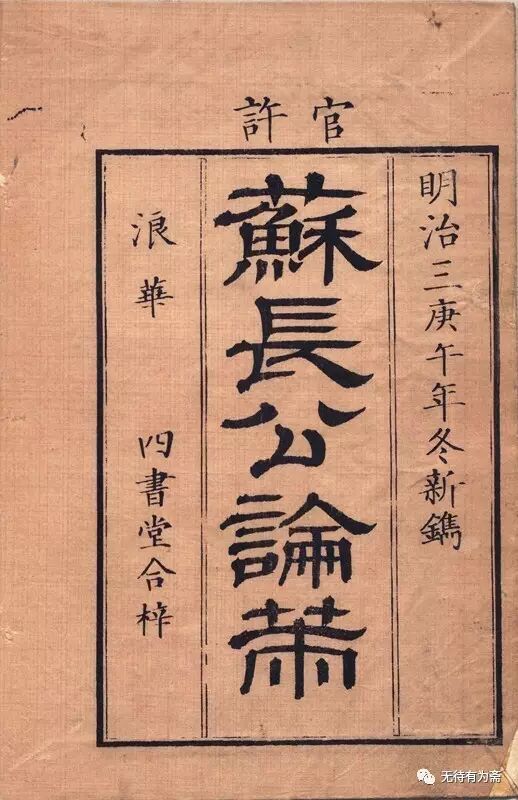 官許
明治三庚午年冬新鐫
蘇長公論策
浪華 四書堂合梓
无待有为斋